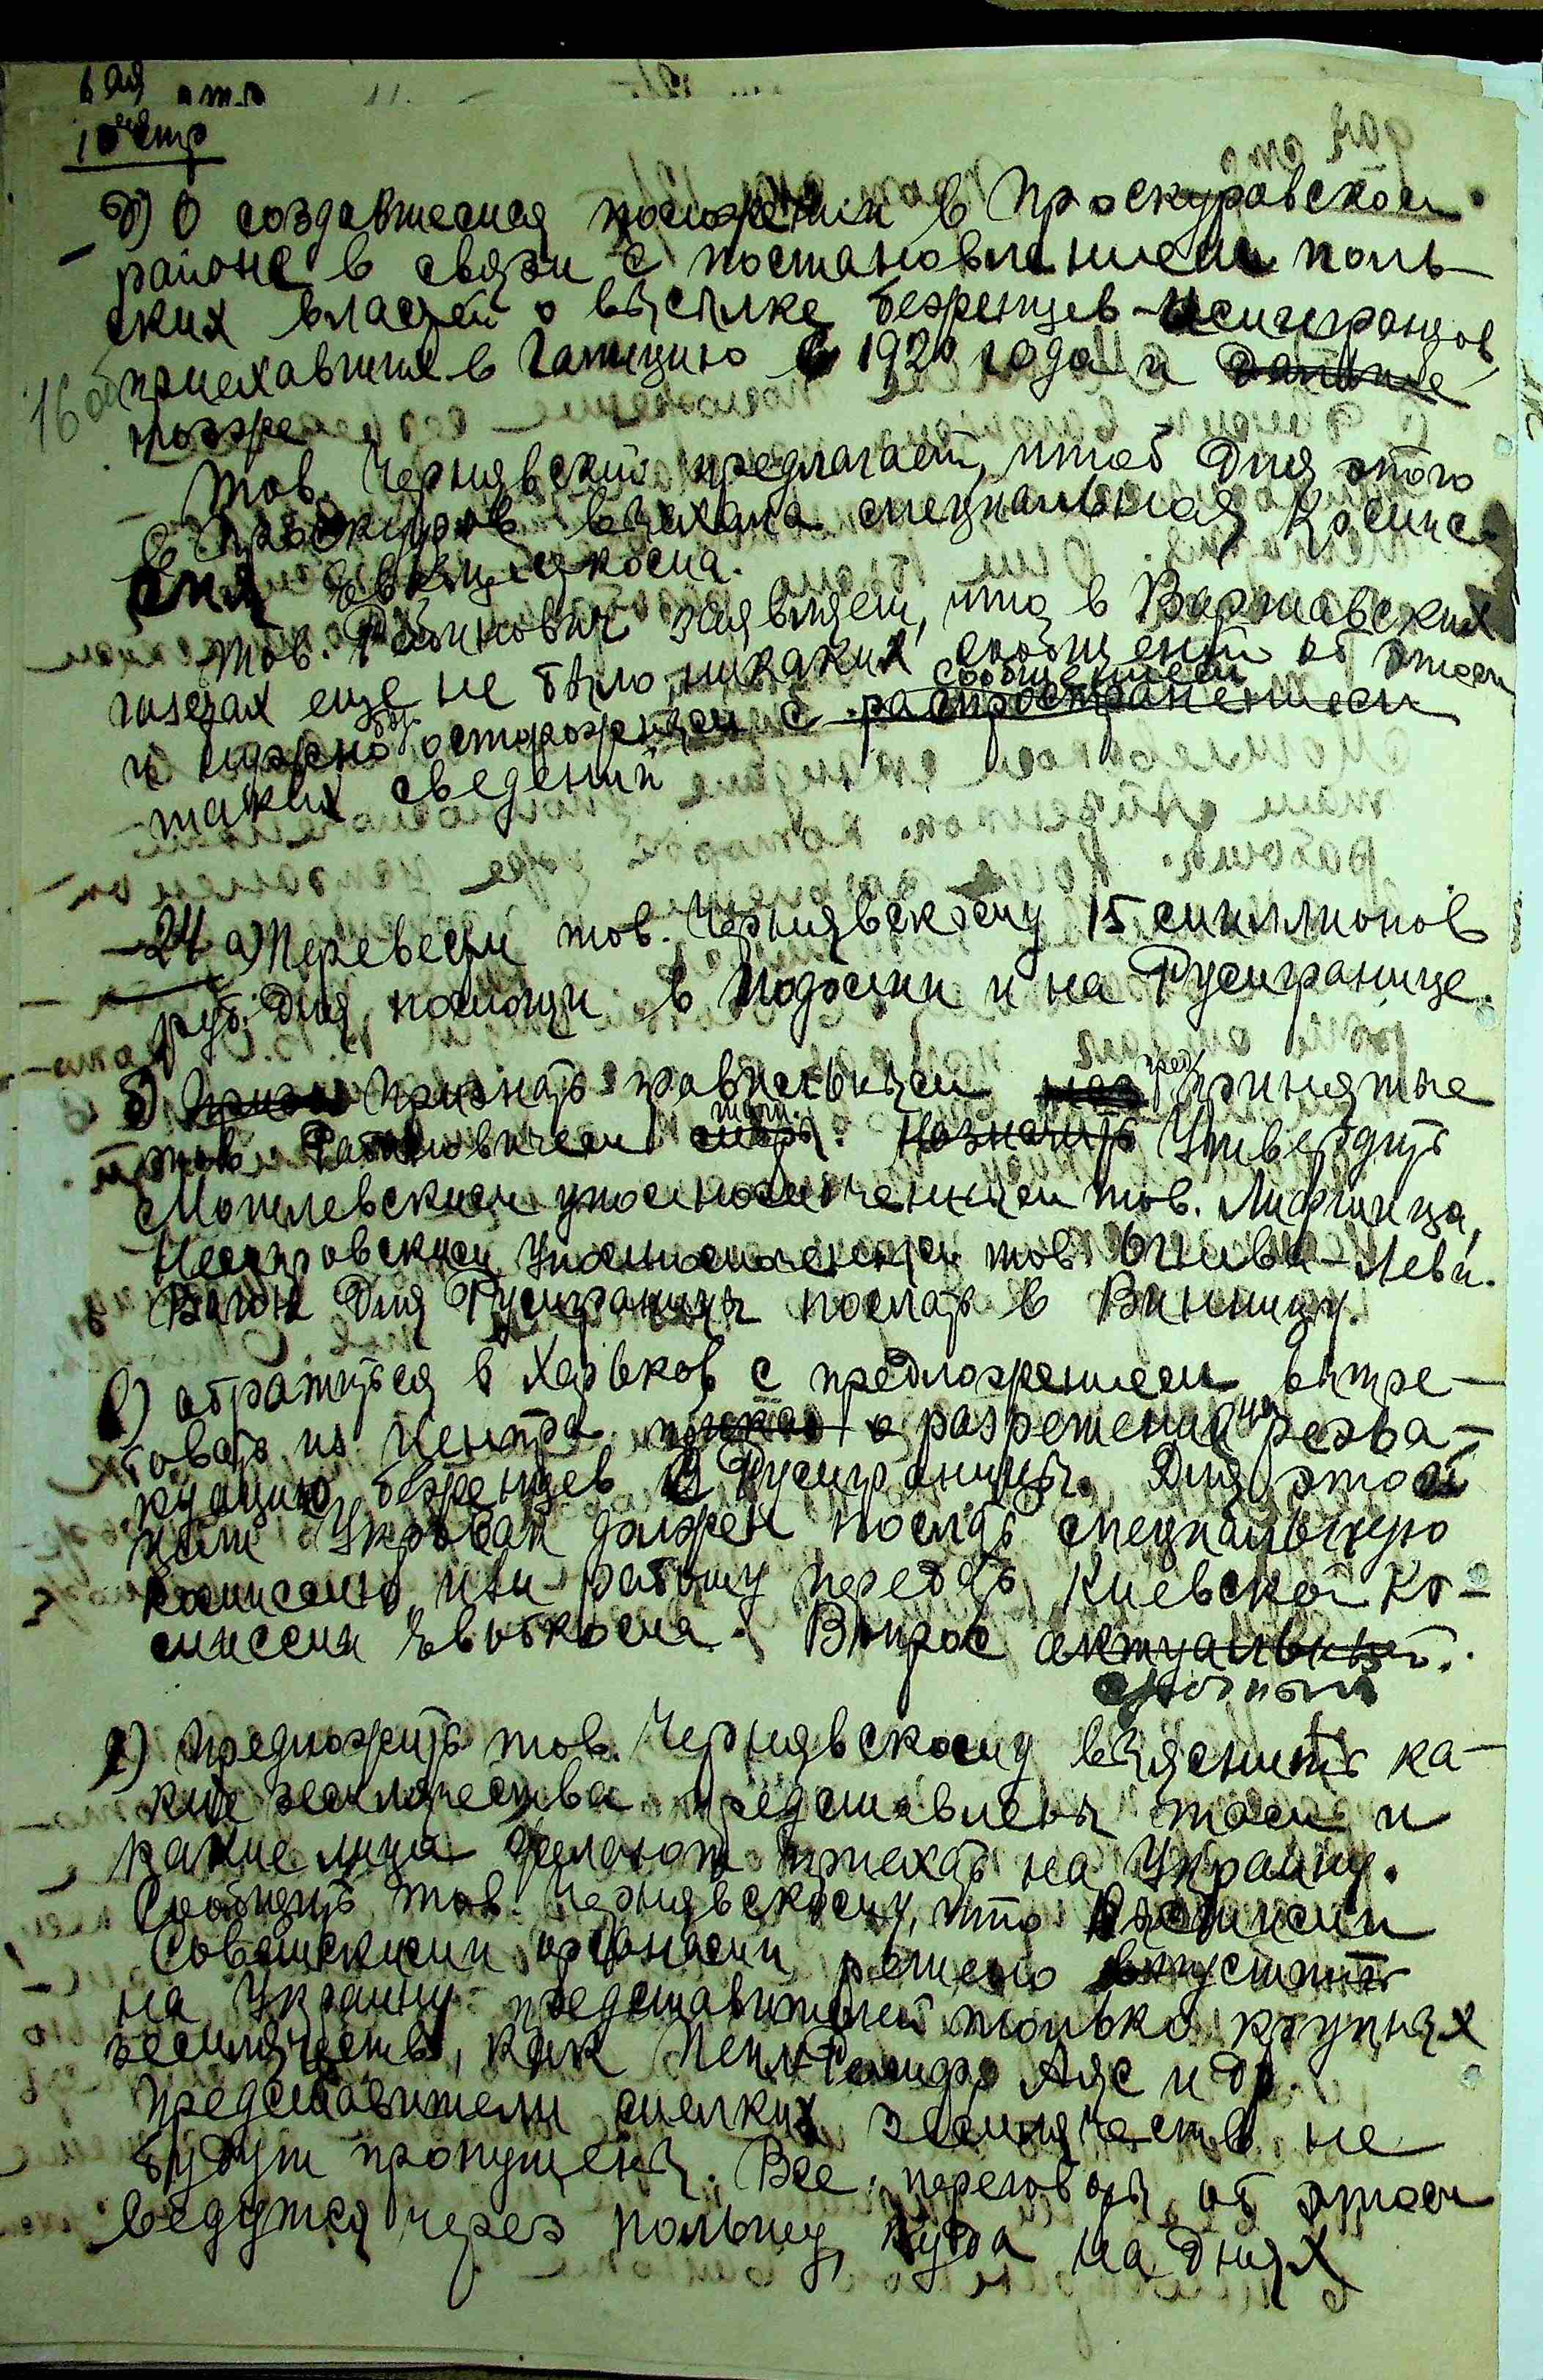 10ая стр
д) О создавшемся положении в Проскуровском
районе в связи с постановлением поль-
ских властей о высылке беженцев-эмигрантов
приехавших в Галицию с 1920 года и
позже
16 об
Тов. Чернявский предлагает, чтоб для этого
в Проскуров выехала специальная комис-
сия Евобкома.
Тов. Рабинович заявляет, что в Варшавских
газетах еще не было никаких сообщений об этом
и нужно быть осторожным с распространением сообщением
таких сведений
24 а) Перевести тов. Чернявскому 15 миллионов
руб. для помощи в Подолии и на Румгранице.
б) Признать правильным принятые
тов Рабиновичем Назначить Утвердить
Могилевским уполномоченным тов. Лифшица,
уполномоченным тов.
Вагон для Румграницы послать в Винницу.
в) обратиться в Харьков с предложением вытре-
бовать из центра о разрешении на реэва-
куацию беженцев с Румграницы. Для этой
цели должен послать специальную
комиссию или работу передать Киевской ко-
миссии Евобкома. Вопрос актуальный.
срочный
г) Предложить тов. Чернявскому выяснить ка-
кие землячества представлены там и
какие лица желают приехать на Украину.
Сообщить тов. Чернявскому, что
Советскими органами решено впустить
на Украину представителей только крупных
землячеств, как и др.
Представители мелких землячеств не
будут пропущены. Все переговоры об этом
ведутся через Польшу, куда на днях